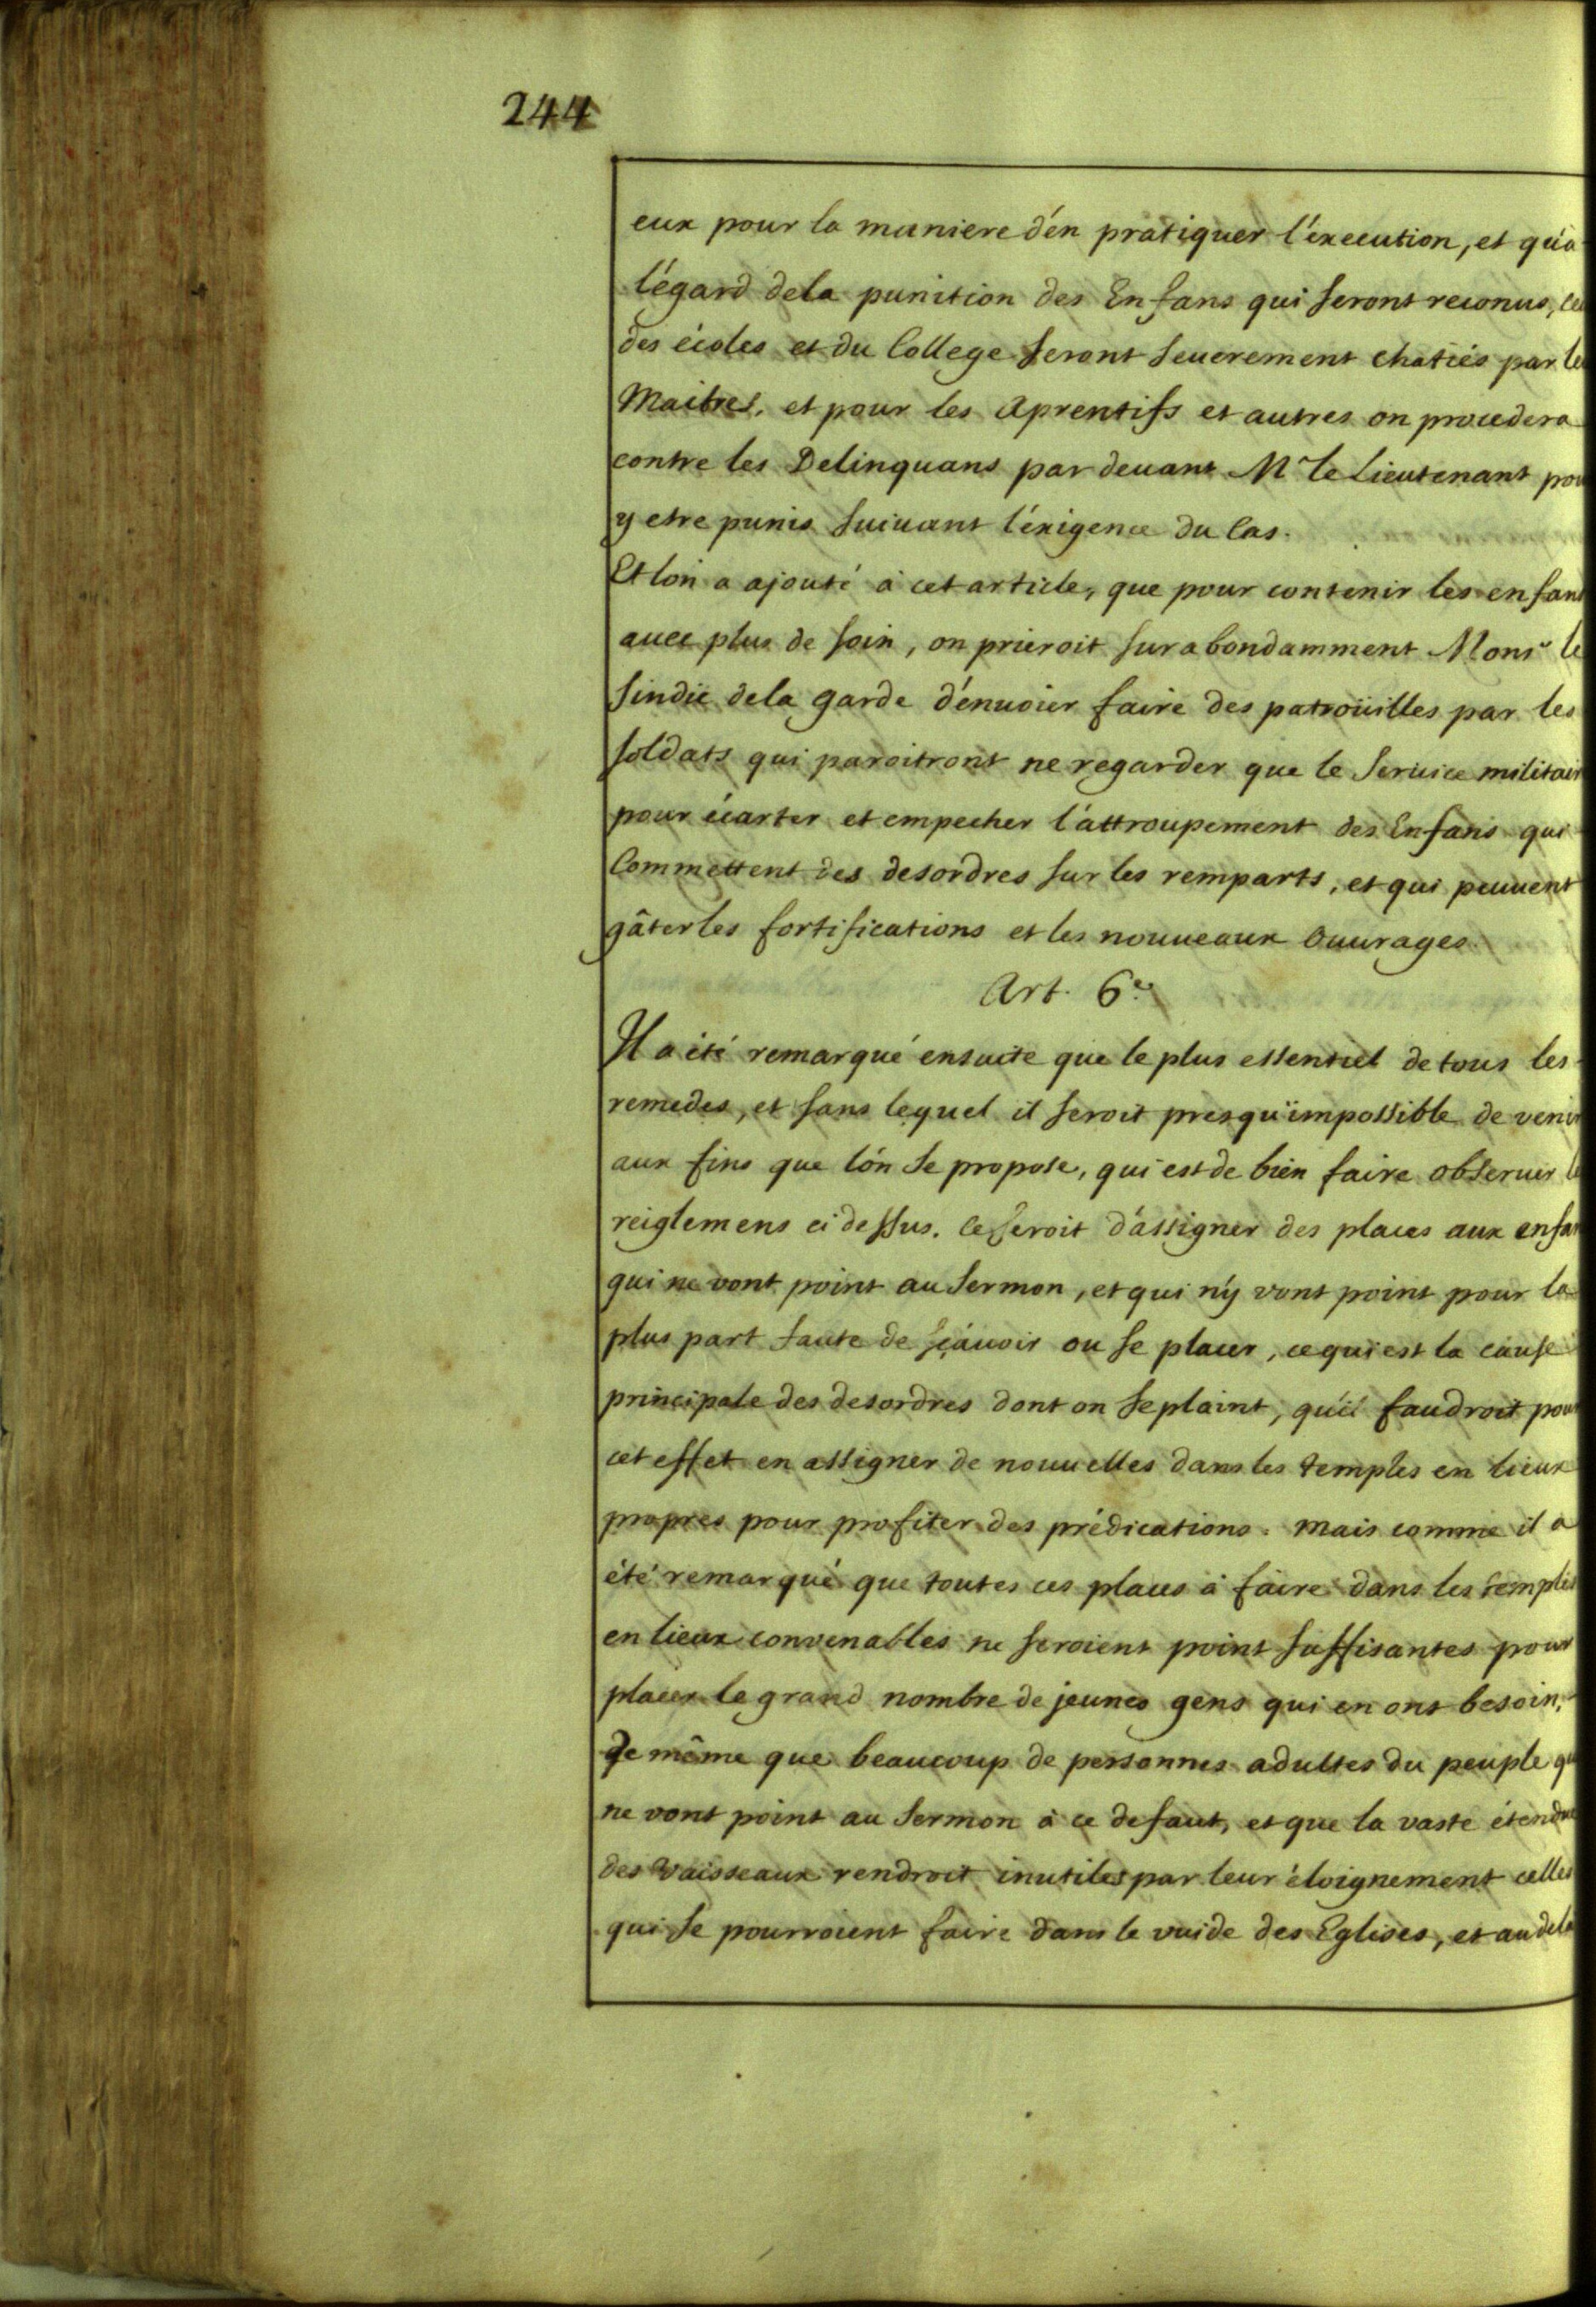 244
eux pour la maniere d'én pratiquer l'éxecution, et qu'a
l'égard dela punition des Enfans qui seront reconus,
des écoles et du College seront seuerement chatiés par
Maitres, et pour les Aprentifs et autres on procedera
contre les Delinquans par deuant Mr le Lieutenant
y etre punis suiuant l'éxigence du Cas.
Et lon a ajouté à cet article, que pour contenir les enfans
auec plus de soin, on prieroit surabondamment Monsr le
Sindic dela garde d'énuoier faire des patroüilles par les
soldats qui paroitront ne regarder que le Seruice militair
pour écarter et empecher l'áttroupement des Enfans qui
Commettent des desordres sur les remparts, et qui peuuent
gâter les fortifications et les nouueaux Ouurages.
Art. 6e
Il a été remarqué ensuite que le plus essentiel de tous les
remedes, et sans lequel il seroit presqu'impossible de venir
aux fins que lón se propose, qui est de bien faire obseruer
reiglemens ci dessus. ce seroit d'ássigner des places aux enfan
qui ne vont point au Sermon, et qui n'ÿ vont point pour la
plus part faute de sçauoir ou se placer, ce qui est la cause
principale des desordres dont on se plaint, qu'il faudroit pour
cet effet en assigner de nouuelles dans les temples en lieux
propres pour profiter des prédications. mais comme il a
été remarqué que toutes ces places à faire dans les temples
en lieux convenables ne seroient point suffisantes pour
placer le grand nombre de jeunes gens qui en ont besoin,
de même que beaucoup de personnes adultes du peuple qu
ne vont point au Sermon à ce defaut, et que la vaste étendue
des Vaisseaux rendroit inutiles par leur éloignement celles
qui se pourroient faire dans le vuide des Eglises, et au dela